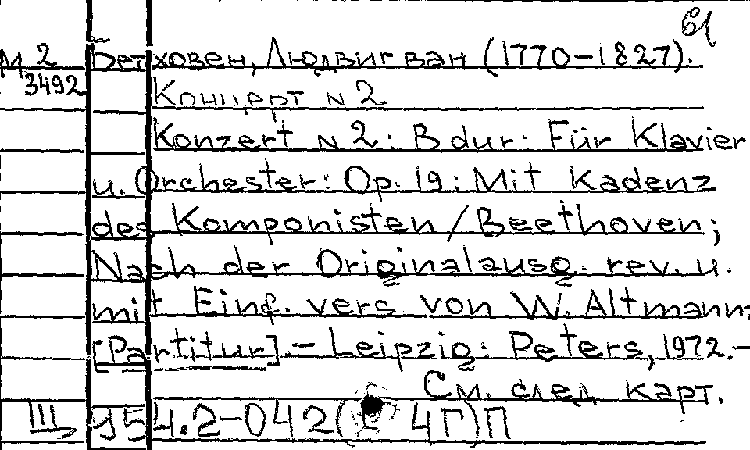 61
М 2 Бетховен, Людвиг ван (1770-1827).
3492 Концерт N 2
Konzert N 2: B dur: Für Klavier
u. Orchester: Op. 19: Mit Kadenz
des Komponisten / Beethoven;
Nach der Originalausg. rev. u.
mit Einf. vers von W. Altmann
[Partitur].- Leipzig: Peters, 1972.-
См. след. карт.
III 954.2-042( 4Г)П